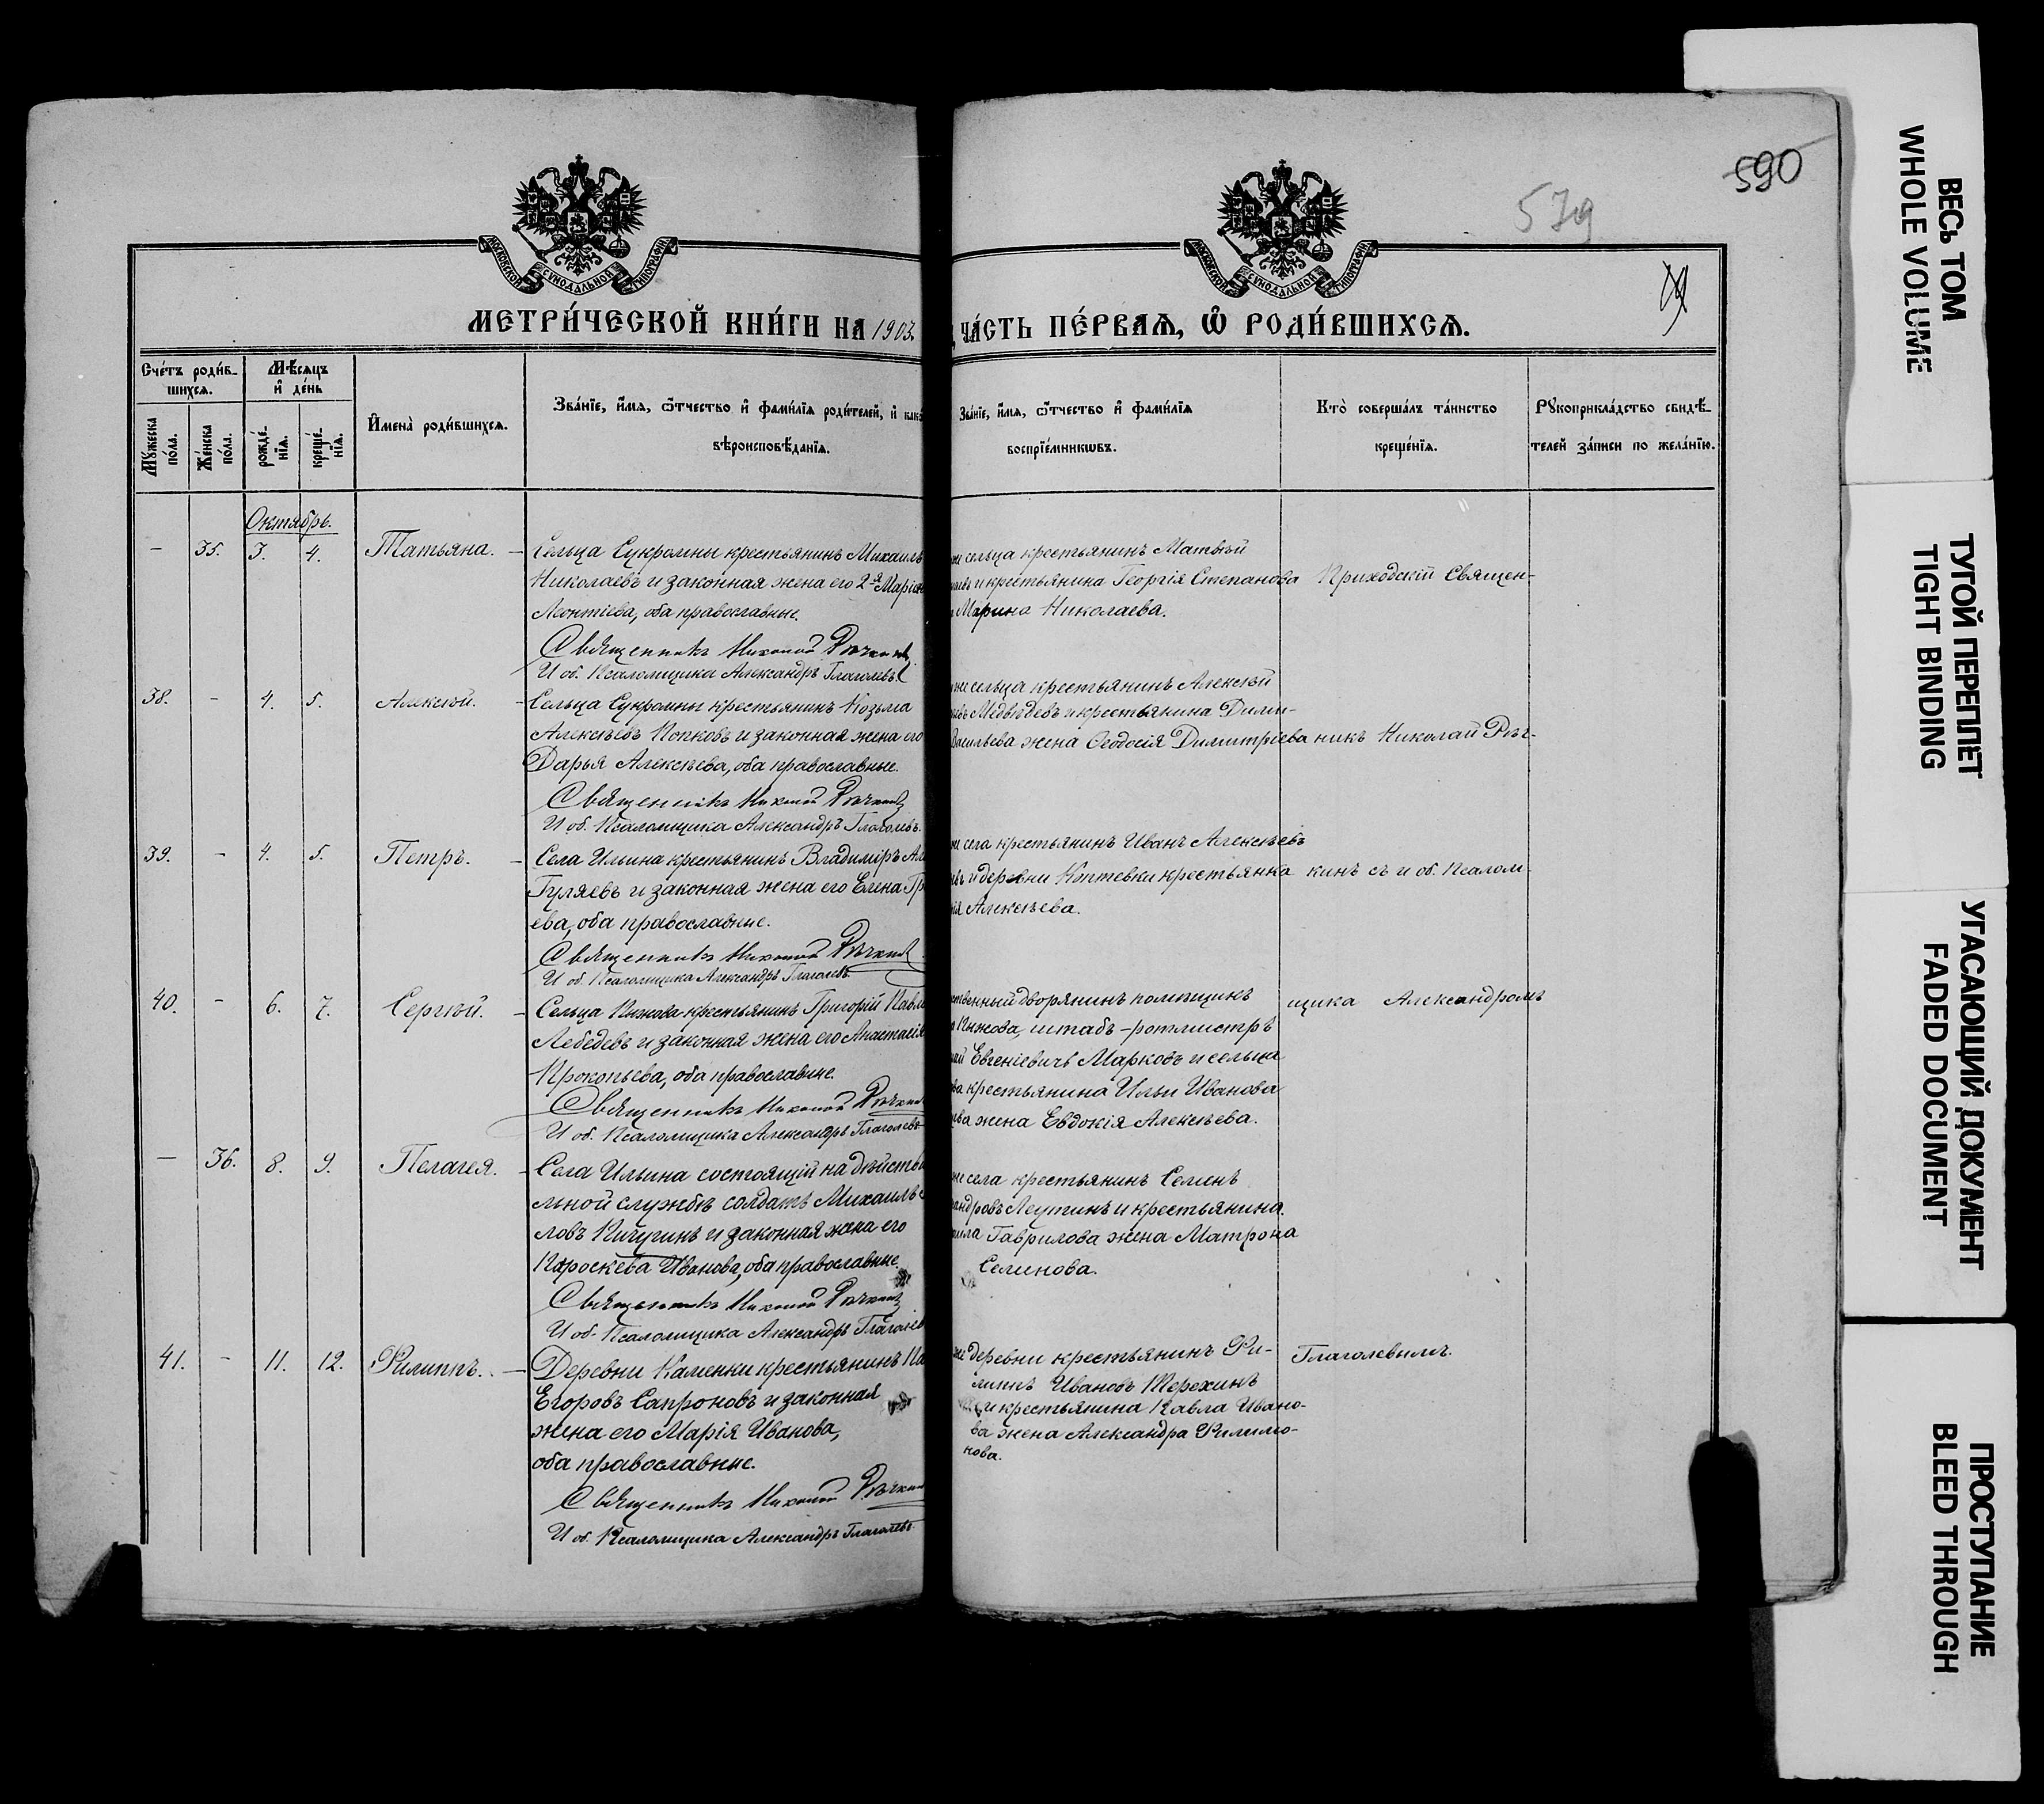 590
579
МОСКОВСКОЙ СѴНОДАЛЬНОЙ ТИПОГРАФІИ
МОСКОВСКОЙ СѴНОДАЛЬНОЙ ТИПОГРАФІИ
МЕТРИ́ЧЕСКОЙ КНИ́ГИ НА 1903.
ЧА́СТЬ ПЕ́РВАѦ, Ѡ РОДИ́ВШИХСѦ.
Сче́тъ роди́в-
шихсѧ.
Мѣ́сѧцъ
и҆ де́нь
Мꙋ́жеска по́ла.
Же́нска по́ла.
рожде́-
нїѧ.
креще́-
нїѧ.
И҆мена̀ роди́вшихсѧ.
Зва́нїе, и҆́мѧ, ѻ҆́тчество и҆ фами́лїѧ роди́телей, и҆ како
вѣроисповѣ́данїѧ.
Зва́нїе, и҆́мѧ, ѻ҆́тчество и҆ фами́лїѧ
воспрїе́мникѡвъ.
Кто̀ соверша́лъ та́инство
креще́нїѧ.
Рꙋкоприкла́дство свидѣ́-
телей за́писи по жела́нїю.
Октябрь.
— 35. 3. 4. Татьяна. — Сельца Сукромны крестьянинъ Михаилъ
Николаевъ и законная жена его 2-я Марія
Леонтіева, оба православные.
Священникъ Николай Рѣчкинъ
И об. Псаломщика Александръ Глаголевъ.
сельца крестьянинъ Матвѣй
и крестьянина Георгія Степанова
Марина Николаева.
Приходскій Священ-
38. — 4. 5. Алексѣй. — Сельца Сукромны крестьянинъ Козьма
Алексѣевъ Попковъ и законная жена его
Дарья Алексѣева, оба православные.
Священникъ Николай Рѣчкинъ
И об. Псаломщика Александръ Глаголевъ.
сельца крестьянинъ Алексѣй
Медвѣдевъ и крестьянина Дими-
Васильева жена Ѳеодосія Димитріева
никъ Николай Рѣч-
39. — 4. 5. Петръ. — Села Ильина крестьянинъ Владиміръ Ал
Гуляевъ и законная жена его Елена Гр
ева, оба православные.
Священникъ Николай Рѣчкинъ
И об. Псаломщика Александръ Глаголевъ.
села крестьянинъ Иванъ Алексѣевъ
и деревни Коптевки крестьянка
Алексѣева.
кинъ съ и об. Псалом-
40. — 6. 7. Сергѣй. — Сельца Пыжова крестьянинъ Григорій Павл
Лебедевъ и законная жена его Анастасія
Прокопьева, оба православные.
Священникъ Николай Рѣчкинъ
И об. Псаломщика Александръ Глаголевъ
ственный дворянинъ помѣщикъ
Пыжова, штабъ-ротмистръ
Евгеніевичъ Марковъ и сельца
крестьянина Ильи Иванова
жена Евдокія Алексѣева.
щика Александромъ
— 36. 8. 9. Пелагея. — Села Ильина состоящій на дѣйстви
льной службѣ солдатъ Михаилъ
ловъ Пичугинъ и законная жена его
Параскева Иванова, оба православные.
Священникъ Николай Рѣчкинъ
И об. Псаломщика Александръ Глаголев
села крестьянинъ Семенъ
андровъ Леутинъ и крестьянина
Гаврилова жена Матрона
Селинова.
41. — 11. 12. Филиппъ. — Деревни Каменки крестьянинъ Па
Егоровъ Сапроновъ и законная
жена его Марія Иванова,
оба православные.
Священникъ Николай Рѣчкинъ
И об. Псаломщика Александръ Глаголевъ
деревни крестьянинъ Фи-
липпъ Ивановъ Терехинъ
и крестьянина Павла Ивано-
ва жена Александра Филимо-
нова.
Глаголевымъ.
ВЕСЬ ТОМ
WHOLE VOLUME
ТУГОЙ ПЕРЕПЛЕТ
TIGHT BINDING
УГАСАЮЩИЙ ДОКУМЕНТ
FADED DOCUMENT
ПРОСТУПАНИЕ
BLEED THROUGH